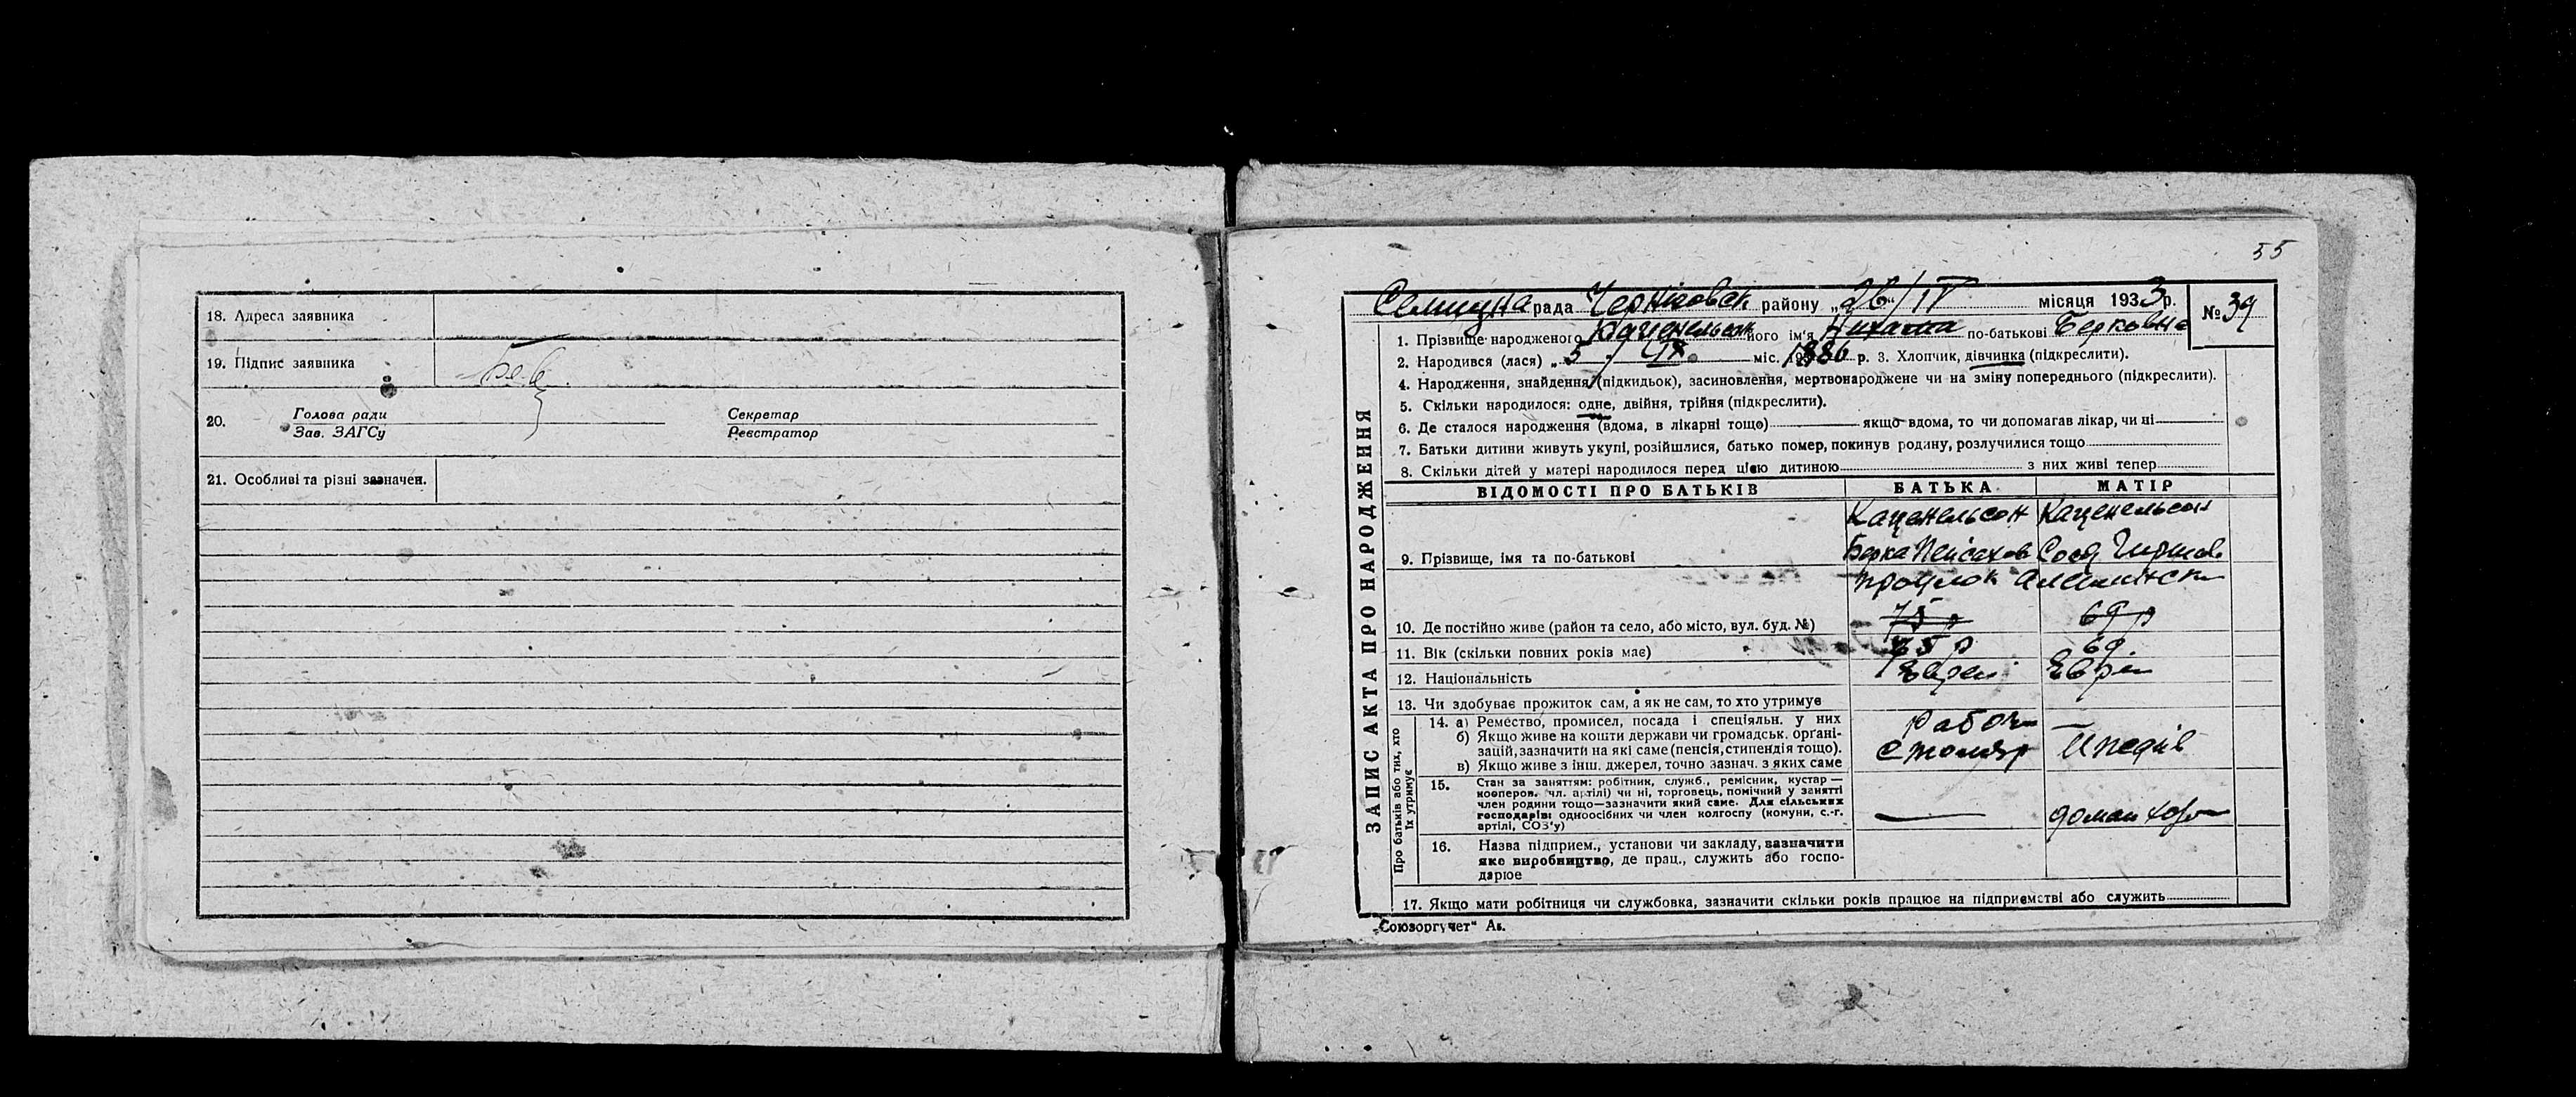 18. Адреса заявника
19. Підпис заявника
20. Голова ради Секретар
Зав. ЗАГСу Реєстратор
21. Особливі та різні зазначен.
55
рада района „26“/IV місяця 1933р. №39
ЗАПИС АКТА ПРО НАРОДЖЕННЯ
1. Прізвище народженого Каценельсон його ім'я по-батькові Берковна
2. Народився (лася) „5 міс. 1886 р. 3. Хлопчик, дівчинка (підкреслити).
4. Народження, знайдення (підкидьок), засиновлення, мертвонароджене чи на зміну попереднього (підкреслити).
5. Скільки народилося: одне, двійня, трійня (підкреслити).
6. Де сталося народження (вдома, в лікарні тощо) якщо вдома, то чи допомагав лікар, чи ні
7. Батьки дитини живуть укупі, розійшлися, батько помер, покинув родину, розлучилися тощо
8. Скільки дітей у матері народилося перед цією дитиною з них живі тепер
ВІДОМОСТІ ПРО БАТЬКІВ БАТЬКА МАТІР
Каценельсон Каценельсон
9. Прізвище, імя та по-батькові Берка Пейсахов Гиршов
10. Де постійно живе (район та село, або місто, вул. буд. №) 75 р 69 р
11. Вік (скільки повних років має) 75 р 69
12. Національність Еврей
13. Чи здобуває прожиток сам, а як не сам, то хто утримує
Про батьків або тих, хто їх утримує
14. а) Ремество, промисел, посада і спеціяльн. у них
б) Якщо живе на кошти держави чи громадськ. органі-
зацій, зазначити на які саме (пенсія, стипендія тощо).
в) Якщо живе з інш. джерел, точно зазнач. з яких саме
столяр
15. Стан за заняттям: робітник, служб., ремісник, кустар —
кооперов. (чл. артілі) чи ні, торговець, помічний у занятті
член родини тощо—зазначити який саме. Для сільських
господарів: одноосібних чи член колгоспу (комуни, с.-г.
артілі, СОЗ'у)
16. Назва підприєм., установи чи закладу, зазначити
яке виробництво, де прац., служить або госпо-
дарює
17. Якщо мати робітниця чи службовка, зазначити скільки років працює на підприємстві або служить
„Союзоргучет“